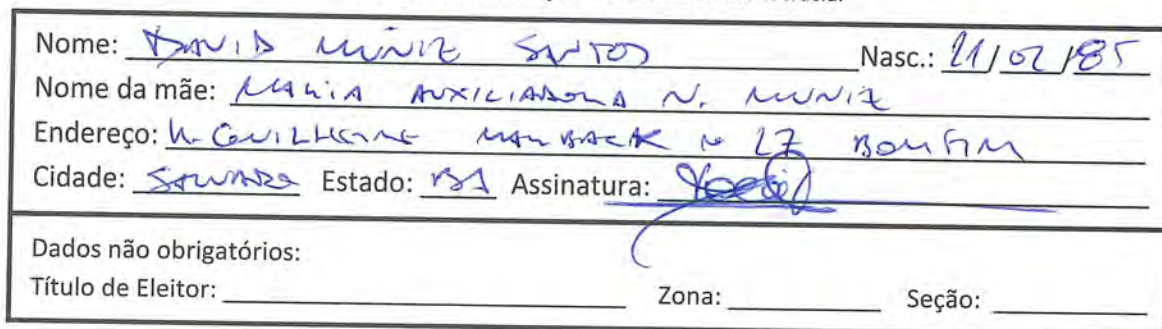 Nome: DAVID MUNIZ SANTOS Nasc.: 21/02/85
Nome da mãe: MARIA AUXILIADORA N. MUNIZ
Endereço: R. GUILHERME MARBACK Nº 27 BONFIM
Cidade: SALVADOR Estado: BA Assinatura:
Dados não obrigatórios:
Título de Eleitor: Zona: Seção: